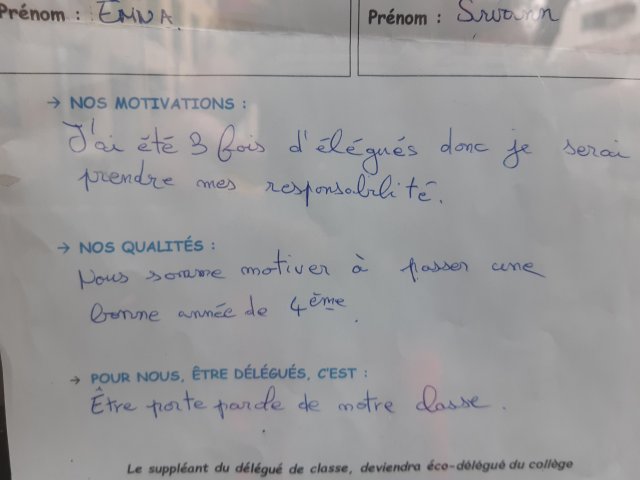 Prénom : EMNA
Prénom : Swann
→ NOS MOTIVATIONS :
J'ai été 3 fois d'élégués donc je serai
prendre mes responsabilité.
→ NOS QUALITÉS :
Nous somme motiver à passer une
bonne année de 4ème.
→ POUR NOUS, ÊTRE DÉLÉGUÉS, C'EST :
Être porte parole de notre classe.
Le suppléant du délégué de classe, deviendra éco-délégué du collège